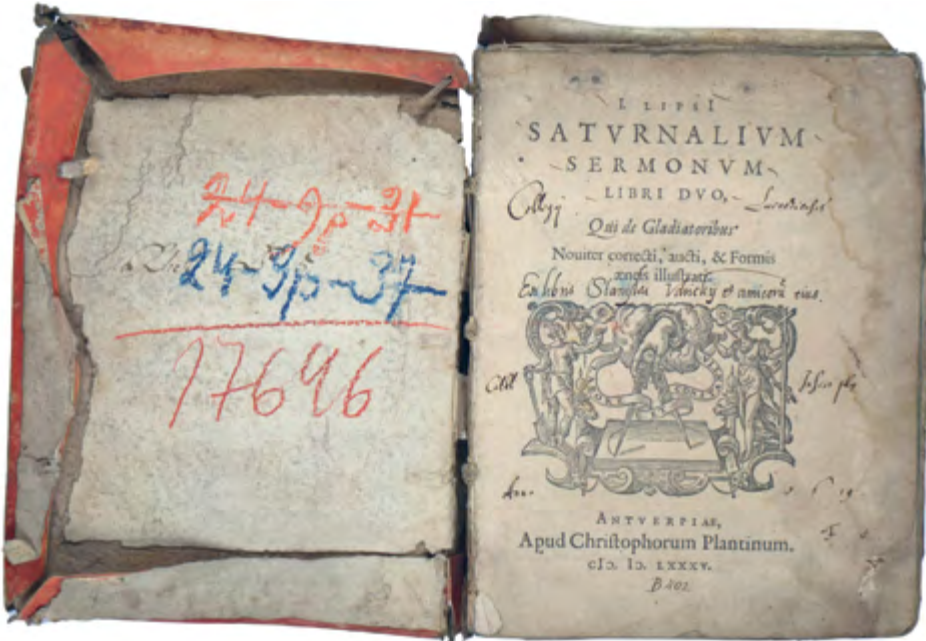 24-9p-31
24-9p-37
17646
I. LIPSI
SATVRNALIVM
SERMONVM
LIBRI DVO,
Collegij
Qui de Gladiatoribus
Noviter correcti, aucti, & Formis
æneis illustrati.
Ex libris et amicorū eius.
ANTVERPIAE,
Apud Christophorum Plantinum.
cIↃ. IↃ. LXXXV.